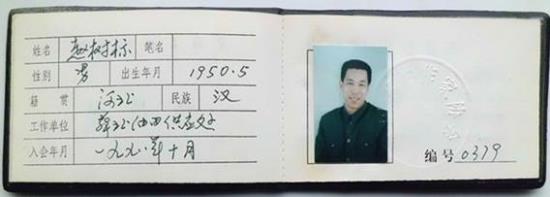 姓名 赵树标 笔名
性别 男 出生年月 1950.5
籍贯 河北 民族 汉
工作单位 华北油田供应处
入会年月 一九九一年十月
编号 0379